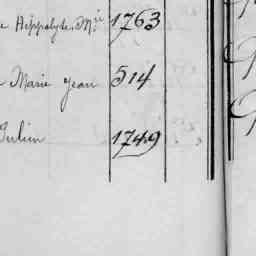 Hippolyte Mie 1763
Marie Jean 514
Julien 1749